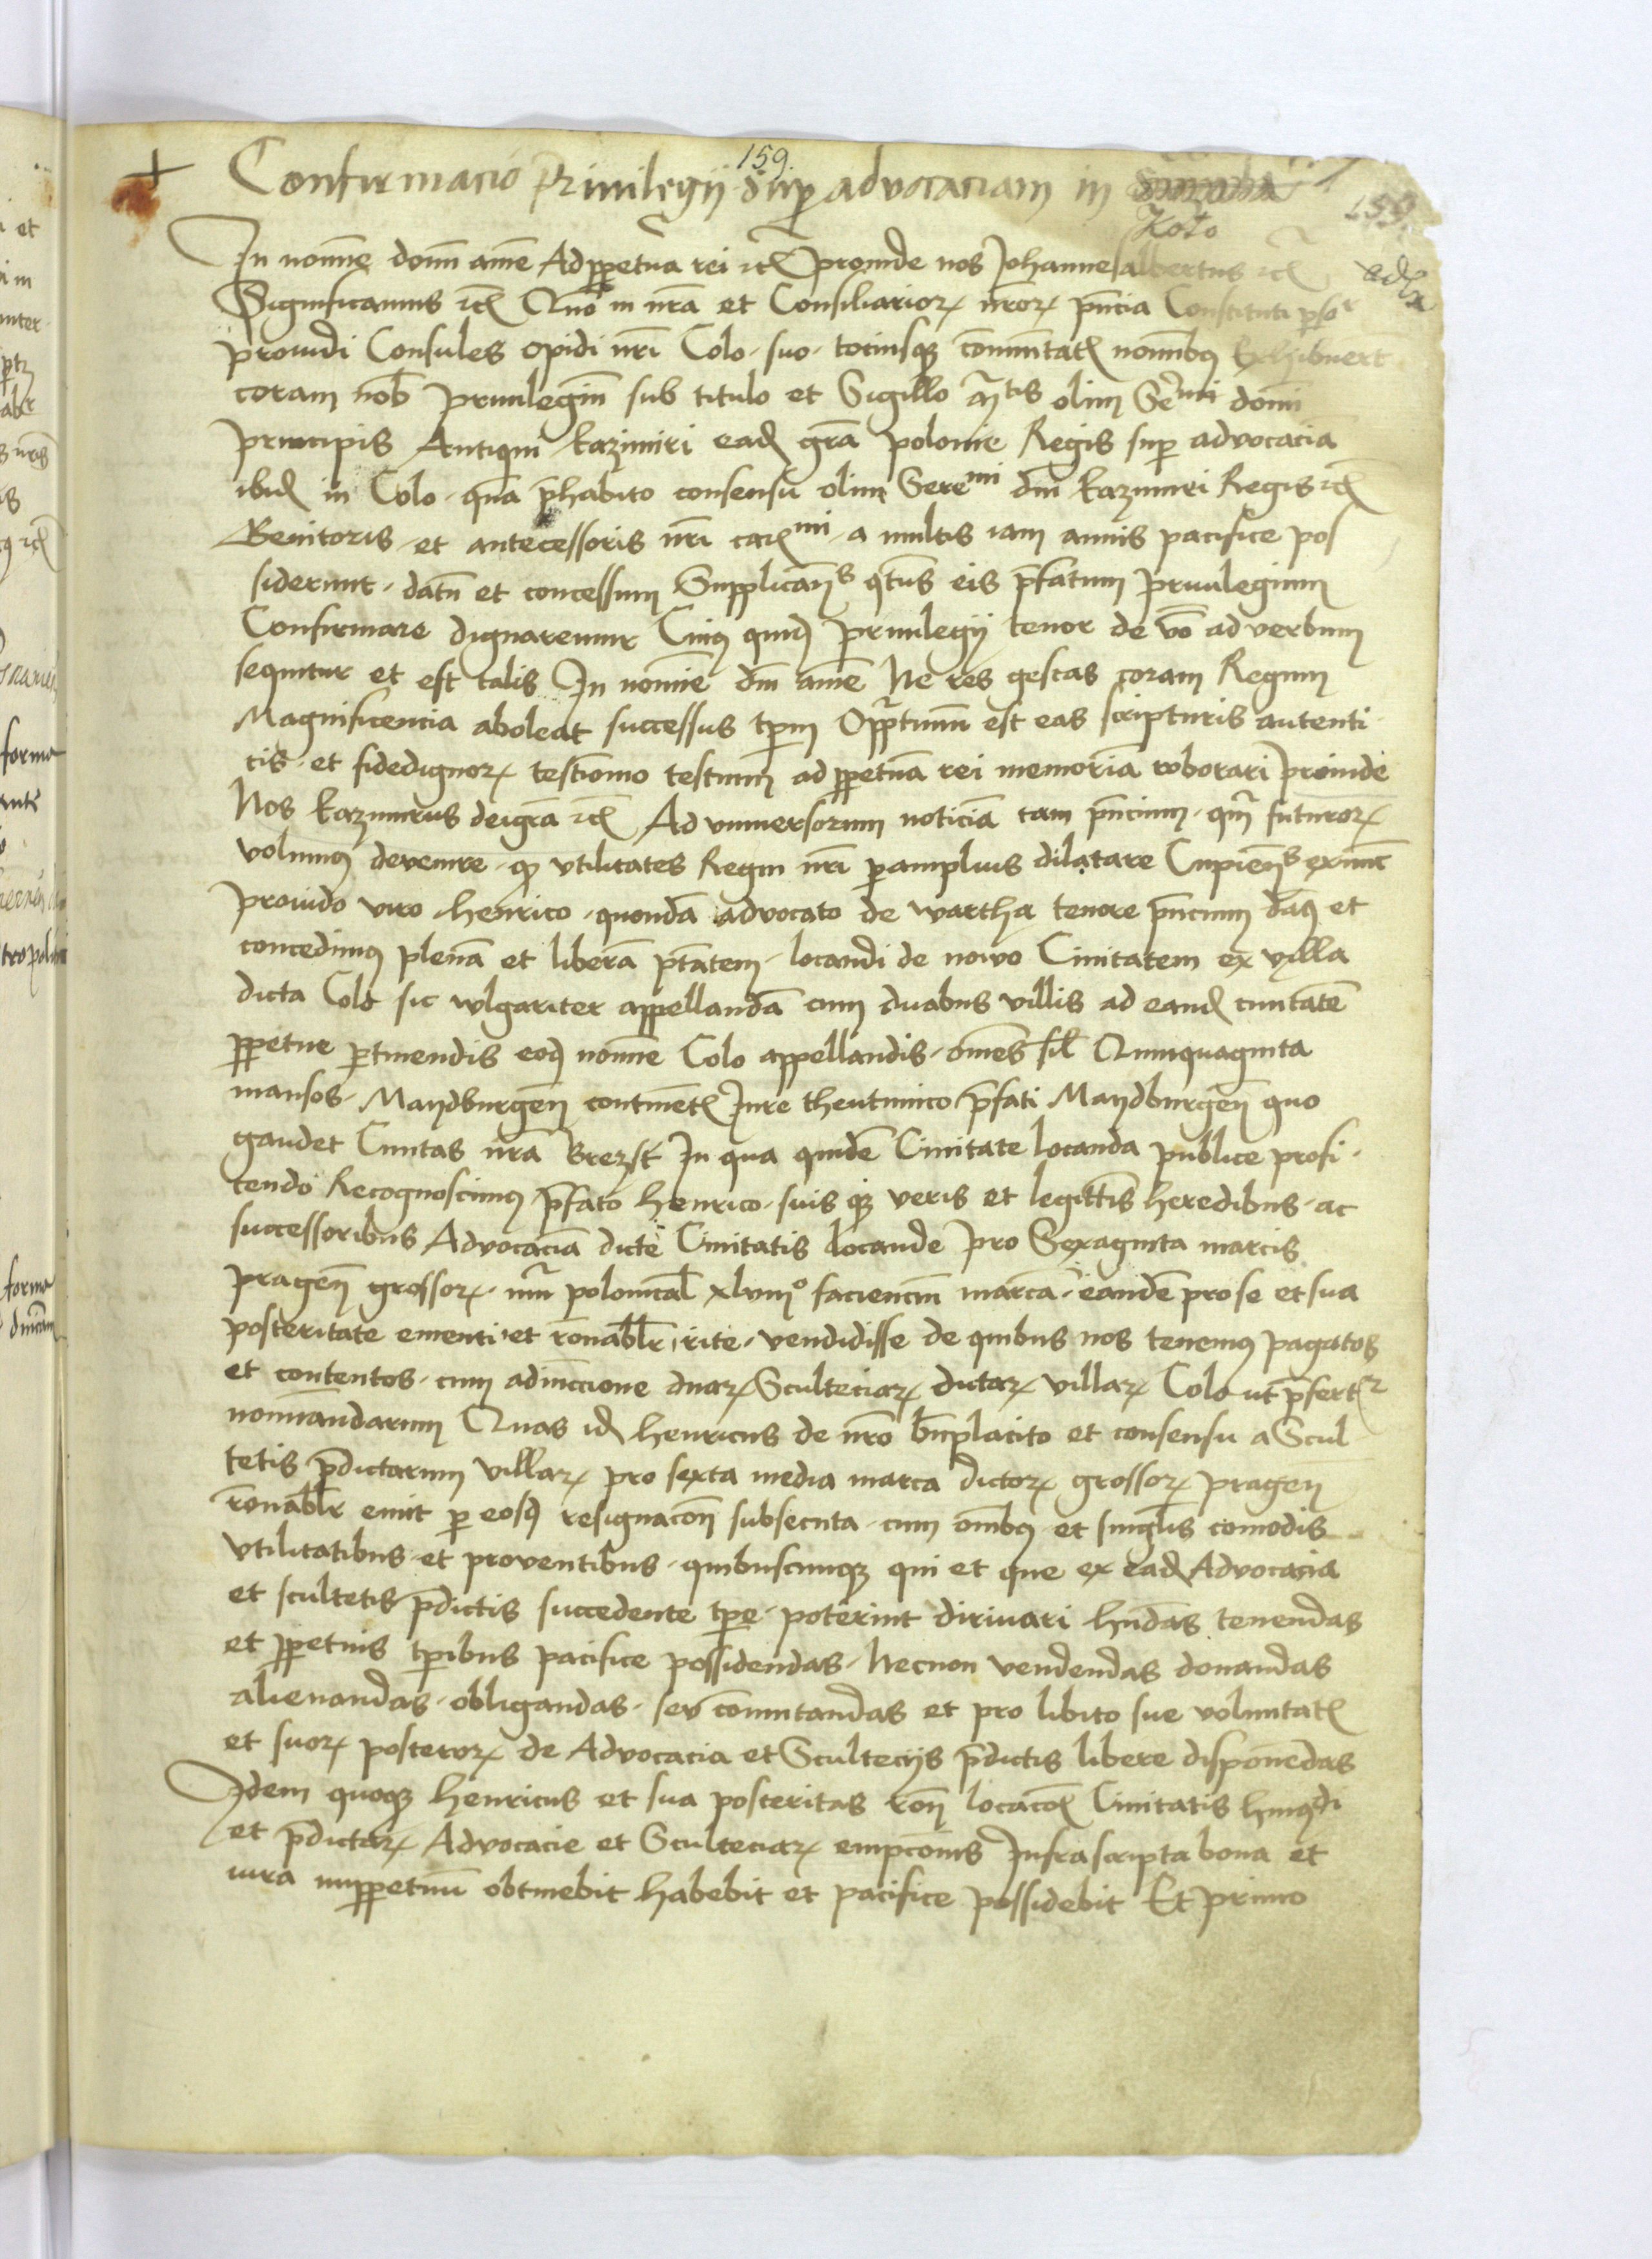 159.
+ Confirmacio Privilegii sup advocaciam in
Kolo
159
In nomine domi ame Ad ppetua rei etc Proinde nos Johannes albertus etc
Significamus etc Quo in nra et Consiliarior nror pncia Constituti pso
providi Consules opidi nri Colo suo tociusq comunitat nominibq Exhibuert
coram nob privilegiu sub titulo et Sigillo olim Sermi domi
principis Antiqui kazimiri ead gra polonie Regis sup advocacia
ibid in Colo qua phabito consensu olim Seremi dni kazimiri Regis etc
Genitoris et antecessoris nri carmi a multis iam annis pacifice pos
siderunt datu et concessum Supplicans qtus eis pfatum privilegium
Confirmare dignaremur Cuiq quid privilegii tenor de vo ad verbum
sequitur et est talis In nomie dni ame Ne res gestas coram Regum
Magnificencia aboleat successus tpm Opptunu est eas scripturis autenti
cis et fidedignor testimo testium ad ppetua rei memoria roborari Proinde
Nos kazimirus dei gra etc Ad universorum noticia tam pncium qm futuror
volumq devenire q utilitates Regni nri pamplius dilatare Cupiens exnunc
provido viro henrico quonda advocato de wartha tenore pncium damq et
concedimq plena et libera ptatem locandi de novo Civitatem ex villa
dicta Colo sic wlgariter appellanda cum duabus villis ad eand civitate
ppetue ptinendis eod nomine Colo appellandis omes sil Quinquaginta
mansos Maydburgen continet Jure theutunico pfati Maydburgen quo
gaudet Civitas nra Brezst In qua quide Civitate locanda publice profi
tendo Recognoscimq pfato henrico suis q veris et legittis heredibus ac
successoribus Advocacia dicte Civitatis locande pro Sexaginta marcis
pragen grossor nu polonical xlviii° faciencm marca eande pro se et sua
posteritate ementi et ronablr rite vendidisse de quibus nos tenemq pagatos
et contentos cum adiunccione duar Scultetiar dictar villar Colo ut pfert
nominandarum Quas id henricus de nro bnplacito et consensu a Scul
tetis pdictarum villar pro sexta media marca dictor grossor pragen
ronablr emit p eosd resignacon subsecuta cum omibq et singlis comodis
Utilitatibus et proventibus quibuscunq qui et que ex ead Advocacia
et scultetis pdictis succedente tpe poterint dirivari hndas tenendas
et ppetuis tpibus pacifice possidendas Necnon vendendas donandas
alienandas obligandas seu comutandas et pro libito sue voluntat
et suor posteror de Advocacia et Scultecys pdictis libere disponendas
Idem quoq henricus et sua posteritas ron locacois Civitatis huiqdi
et pdictar Advocacie et Scultetiar empconis Infrascripta bona et
iura inppetuu obtinebit habebit et pacifice possidebit Et primo